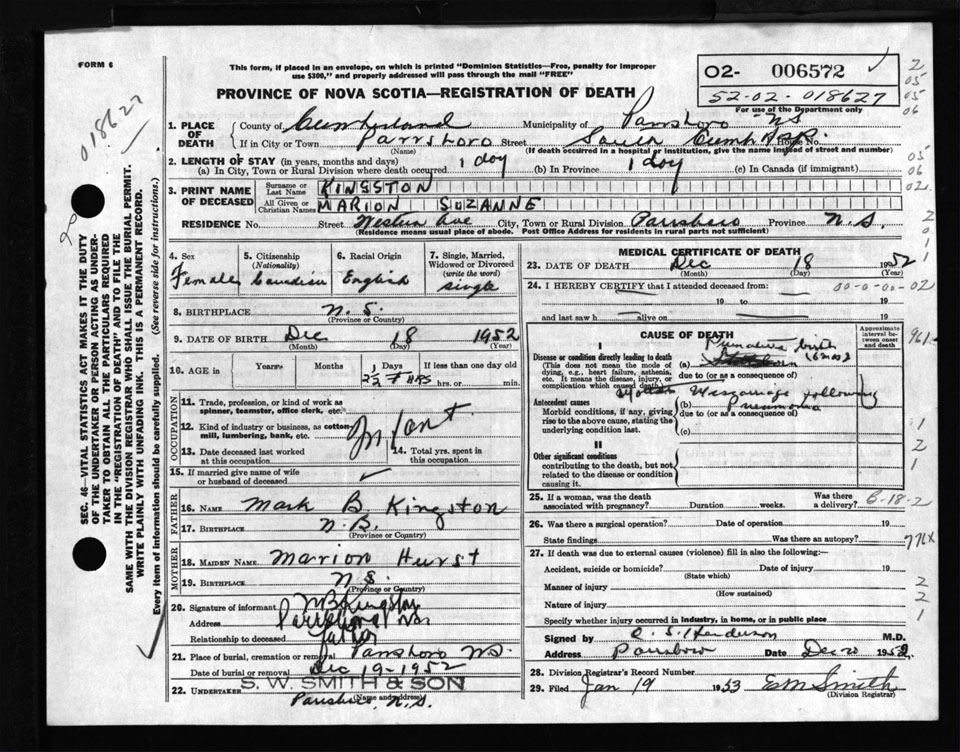 FORM 6
This form, if placed in an envelope, on which is printed "Dominion Statistics—Free, penalty for improper
use $300," and properly addressed will pass through the mail "FREE"
PROVINCE OF NOVA SCOTIA—REGISTRATION OF DEATH
02- 006572
52-02-018627
For use of the Department only
018627
SEC. 46—VITAL STATISTICS ACT MAKES IT THE DUTY
OF THE UNDERTAKER OR PERSON ACTING AS UNDER-
TAKER TO OBTAIN ALL THE PARTICULARS REQUIRED
IN THE "REGISTRATION OF DEATH" AND TO FILE THE
SAME WITH THE DIVISION REGISTRAR WHO SHALL ISSUE THE BURIAL PERMIT.
WRITE PLAINLY WITH UNFADING INK. THIS IS A PERMANENT RECORD.
Every item of information should be carefully supplied. (See reverse side for instructions.)
1. PLACE OF DEATH County of Cumberland Municipality of Parrsboro NS
If in City or Town Parrsboro Street South Cumb House No.
(Name) (If death occurred in a hospital or institution, give the name instead of street and number)
2. LENGTH OF STAY (in years, months and days)
(a) In City, Town or Rural Division where death occurred 1 day (b) In Province 1 day (c) In Canada (if immigrant)
3. PRINT NAME OF DECEASED Surname or Last Name KINGSTON
All Given or Christian Names MARION SUZANNE
RESIDENCE No. Street Western Ave City, Town or Rural Division Parrsboro Province N.S.
(Residence means usual place of abode. Post Office Address for residents in rural parts not sufficient)
4. Sex Female
5. Citizenship (Nationality) Canadian
6. Racial Origin English
7. Single, Married, Widowed or Divorced (write the word) single
8. BIRTHPLACE N.S.
(Province or Country)
9. DATE OF BIRTH Dec 18 1952
(Month) (Day) (Year)
10. AGE in Years Months Days
hrs. or min.
OCCUPATION
11. Trade, profession, or kind of work as
spinner, teamster, office clerk, etc.
12. Kind of industry or business, as cotton-
mill, lumbering, bank, etc. Infant
13. Date deceased last worked
at this occupation
14. Total yrs. spent in
this occupation
15. If married give name of wife
or husband of deceased
FATHER
16. NAME Mark B Kingston
17. BIRTHPLACE N.B.
(Province or Country)
MOTHER
18. MAIDEN NAME Marion Hurst
19. BIRTHPLACE N.S.
(Province or Country)
20. Signature of informant MB Kingston
Address
Relationship to deceased father
21. Place of burial, cremation or removal Parrsboro N.S.
Date of burial or removal Dec 19-1952
22. UNDERTAKER S. W. SMITH & SON
(Name and address)
Parrsboro, N.S.
MEDICAL CERTIFICATE OF DEATH
23. DATE OF DEATH Dec 18 1952
(Month) (Day) (Year)
24. I HEREBY CERTIFY that I attended deceased from: 00-0-00-02
19 to 19
and last saw h alive on 19
CAUSE OF DEATH
Approximate interval between onset and death
I
Disease or condition directly leading to death
(This does not mean the mode of
dying, e.g., heart failure, asthenia,
etc. It means the disease, injury, or
complication which caused death)
(a) Premature birth
due to (or as a consequence of)
Antecedent causes
Morbid conditions, if any, giving
rise to the above cause, stating the
underlying condition last.
(b) following pneumonia
due to (or as a consequence of)
(c)
II
Other significant conditions
contributing to the death, but not
related to the disease or condition
causing it.
25. If a woman, was the death
associated with pregnancy? Duration weeks. Was there
a delivery? 6-18-2
26. Was there a surgical operation? Date of operation 19
State findings Was there an autopsy?
27. If death was due to external causes (violence) fill in also the following:—
Accident, suicide or homicide? Date of injury 19
(State which)
Manner of injury
(How sustained)
Nature of injury
Specify whether injury occurred in industry, in home, or in public place
Signed by Henderson M.D.
Address Parrsboro Date Dec 20 1952
28. Division Registrar's Record Number
29. Filed Jan 19 1953 EM Smith
(Division Registrar)